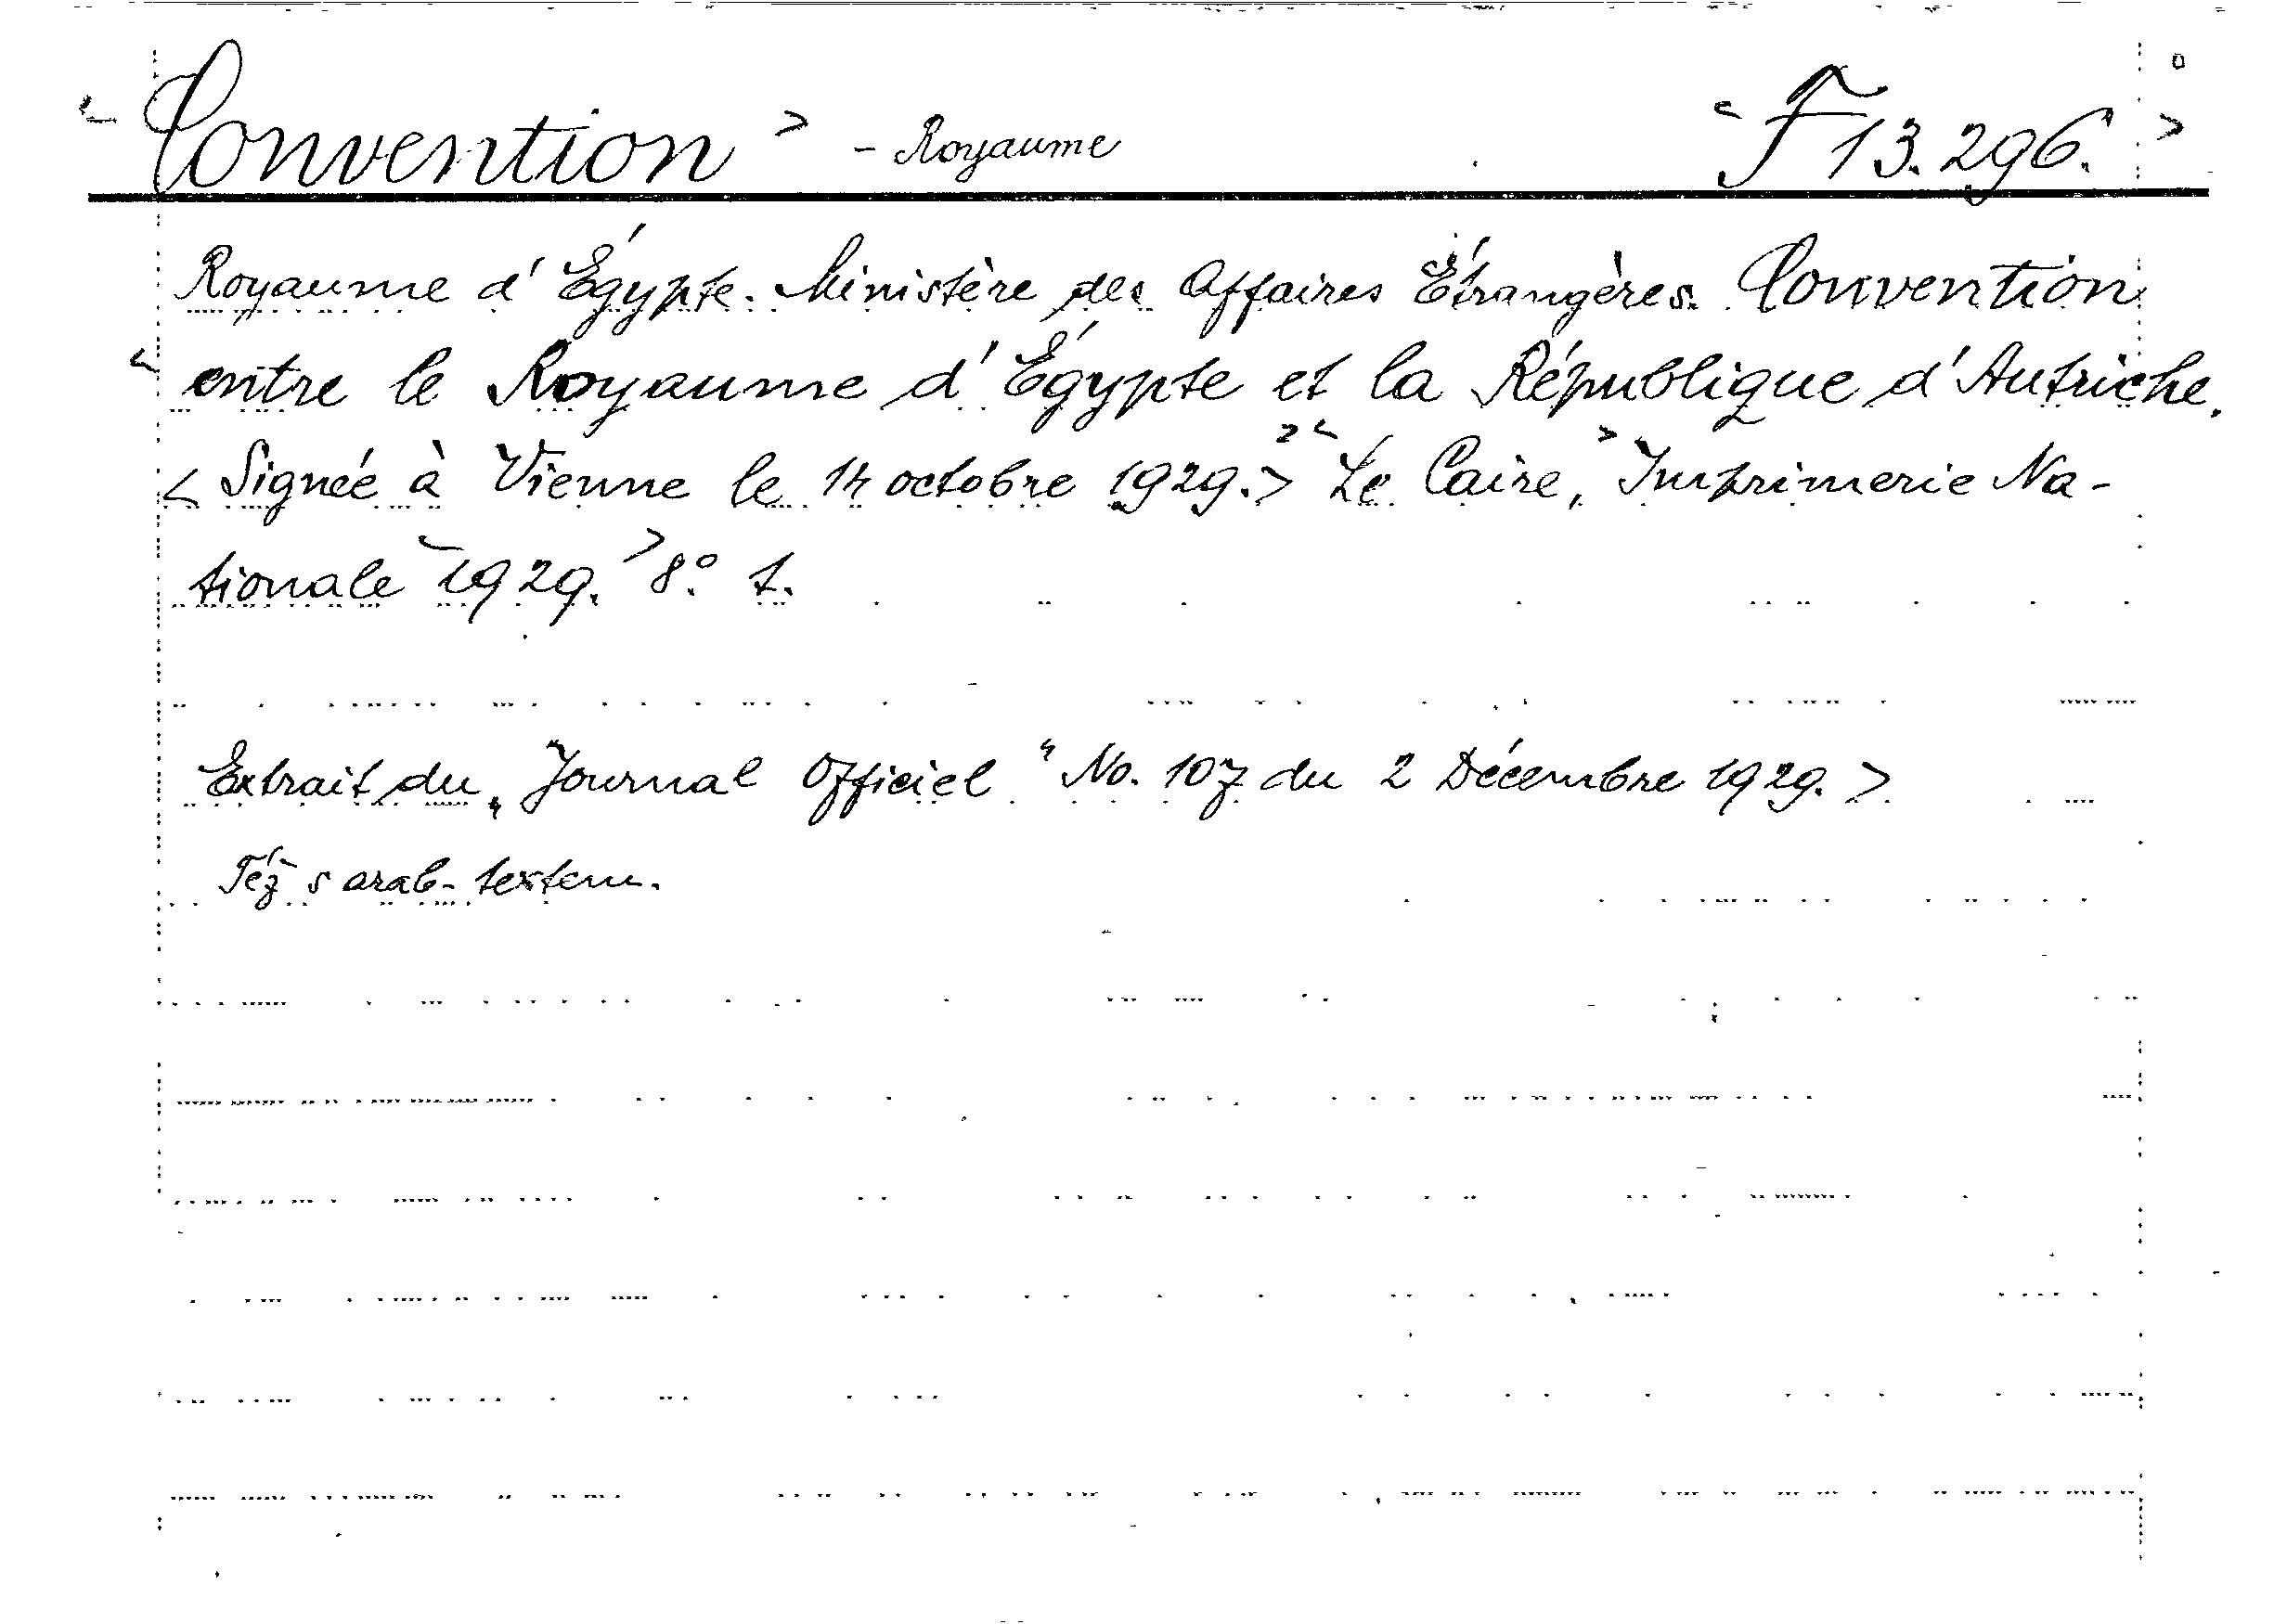 Convention - Royaume F 13.296.
Royaume d'Égypte. Ministère des Affaires Étrangères. Convention
entre le Royaume d'Égypte et la République d'Autriche.
< Signée à Vienne le 14 octobre 1929. > Le Caire, Imprimerie Na-
tionale 1929. 8° t.
Extrait du „Journal Officiel“ No. 107 du 2 Décembre 1929. >
Též s arab. textem.